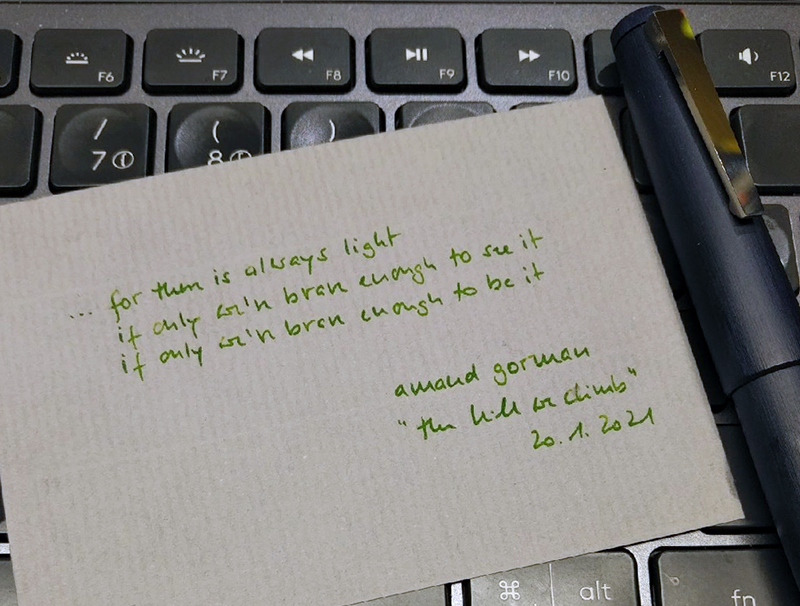 F6 F7 F8 F9 F10 F12
/ ( )
7 8
... for there is always light
if only we're brave enough to see it
if only we're brave enough to be it
amand gorman
"the hill we climb"
20.1.2021
⌘ alt fn